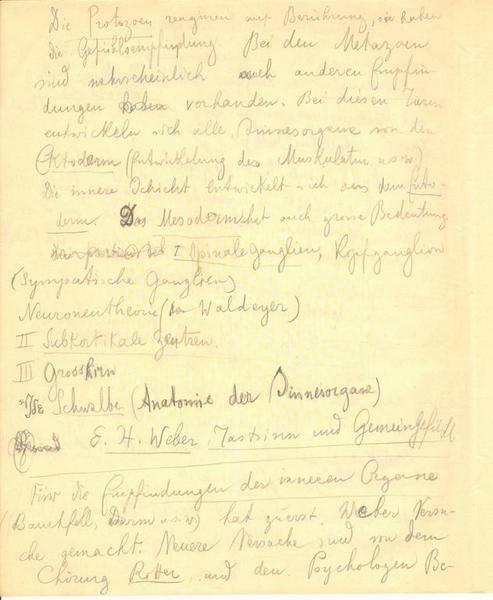 Die Protozoen reagieren auf Berührung, sie haben
die Gefühlsempfindung. Bei den Metazoen
sind wahrscheinlich auch anderen Empfin-
dungen vorhanden. Bei diesen Tieren
entwickeln sich alle Sinnesorgane von den
Ektoderm (Entwicklung des Muskulatur usw)
Die innere Schicht entwickelt sich aus dem Ento-
derm. Das Mesoderm hat auch grosse Bedeutung
I Spinale Ganglien, Kopfganglion
(Sympatische Ganglien)
Neuronentheorie (von Waldeyer)
II Subkortikale Zentren.
III Grosshirn
Schwalbe (Anatomie der Sinnesorgane)
E. H. Weber, Tastsinn und Gemeingefühl
Für die Empfindungen der inneren Organe
(Bauchfell, Darm usw) hat zuerst Weber Versu-
che gemacht. Neuere Versuche sind von dem
Chirurg Ritter und den Psychologen Be-